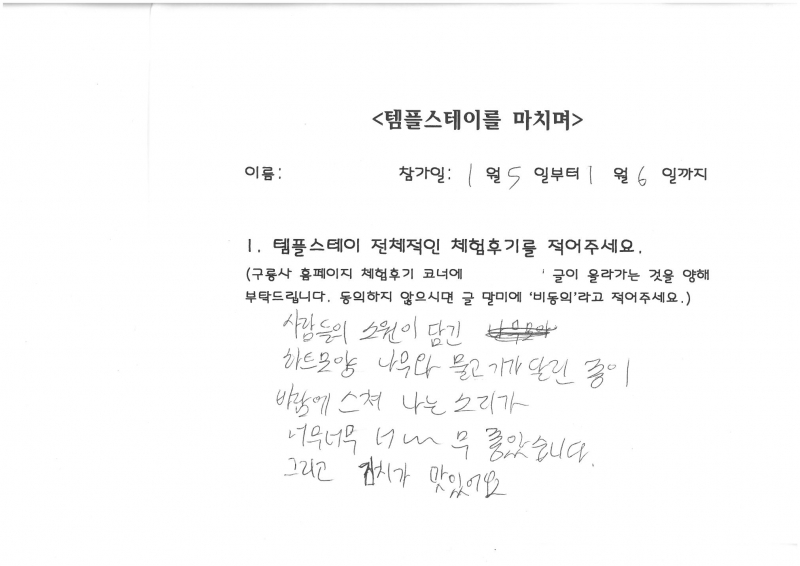 <템플스테이를 마치며>
이름: 참가일: 1 월 5 일부터 1 월 6 일까지
1. 템플스테이 전체적인 체험후기를 적어주세요.
(구룡사 홈페이지 체험후기 코너에 글이 올라가는 것을 양해
부탁드립니다. 동의하지 않으시면 글 말미에 '비동의'라고 적어주세요.)
사람들의 소원이 담긴
하트모양 나무와 물고기가 달린 종이
바람에 스쳐 나는 소리가
너무너무 너~~무 좋았습니다.
그리고 김치가 맛있어요